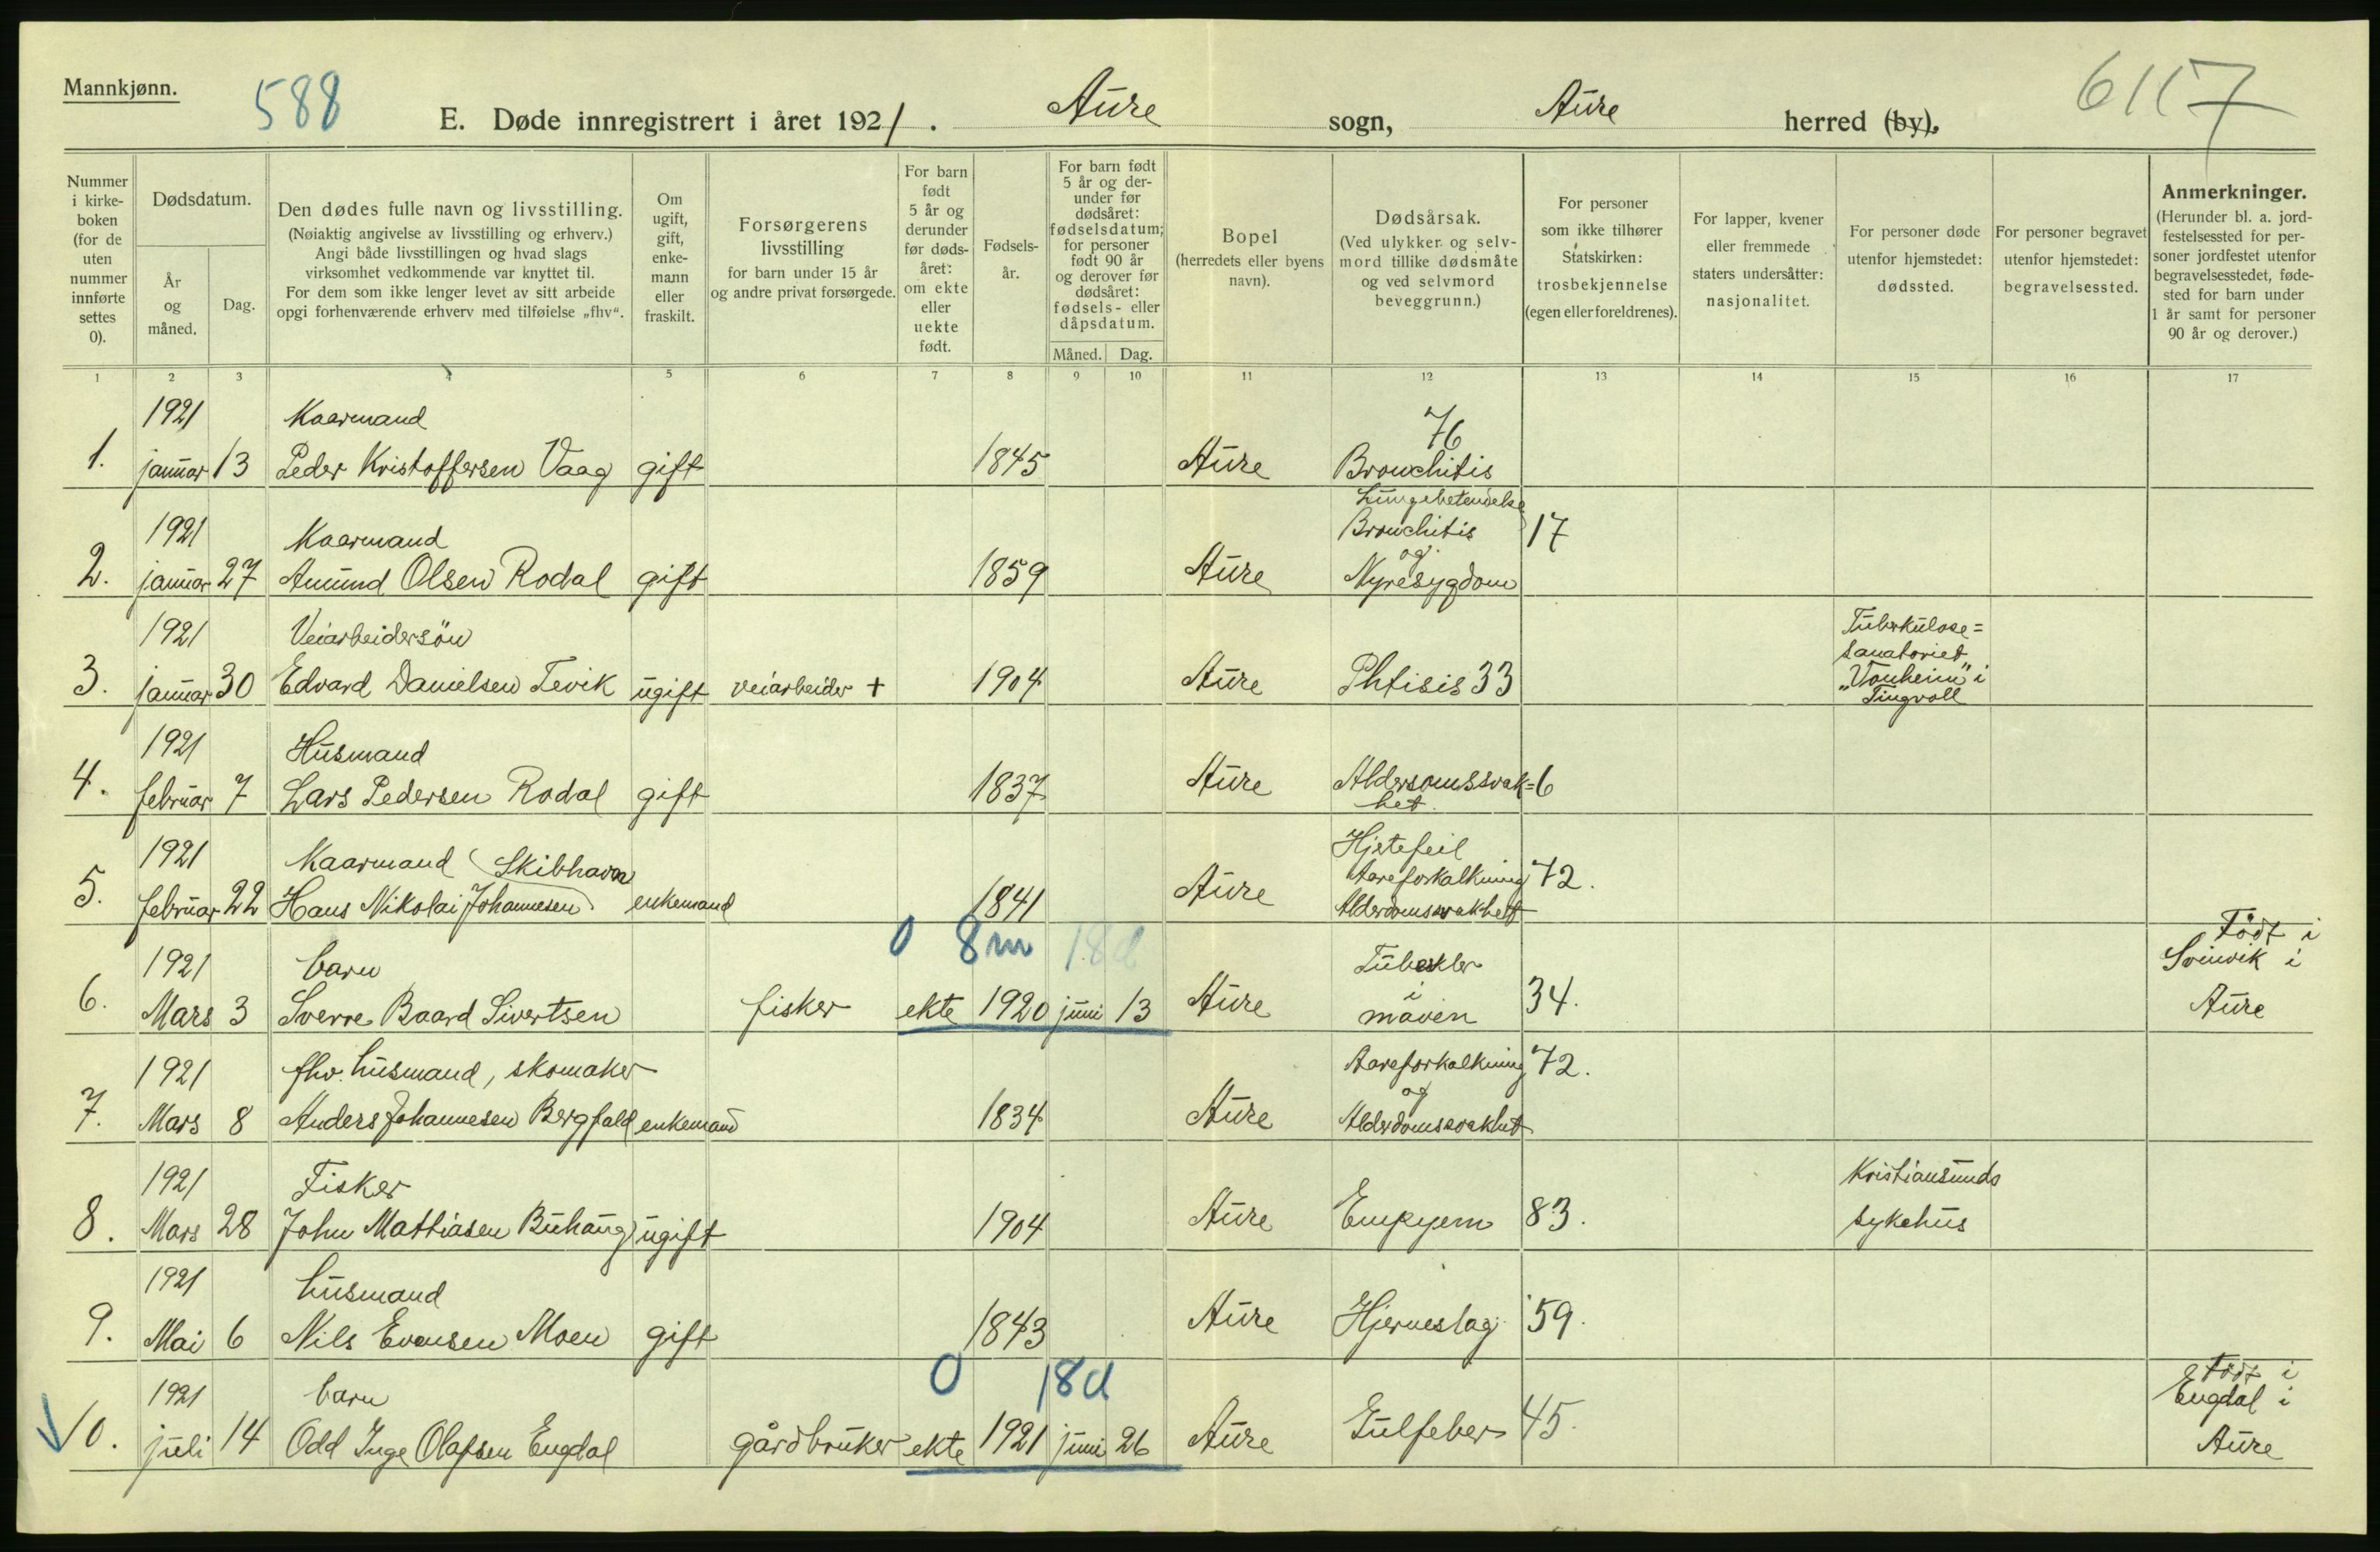 Mannkjønn.
588
E. Døde innregistrert i året 1921. Aure sogn, Aure herred (by).
6117
Nummer i kirke-boken (for de uten nummer innførte settes 0).
Dødsdatum.
År og måned.
Dag.
Den dødes fulle navn og livsstilling.
(Nøiaktig angivelse av livsstilling og erhverv.)
Angi både livsstillingen og hvad slags
virksomhet vedkommende var knyttet til.
For dem som ikke lenger levet av sitt arbeide
opgi forhenværende erhverv med tilføielse „fhv“.
Om ugift, gift, enke-mann eller fraskilt.
Forsørgerens livsstilling
for barn under 15 år
og andre privat forsørgede.
For barn født 5 år og derunder før døds-året: om ekte eller uekte født.
Fødsels-år.
For barn født 5 år og der-under før dødsåret: fødselsdatum; for personer født 90 år og derover før dødsåret: fødsels- eller dåpsdatum.
Måned. Dag.
Bopel
(herredets eller byens navn).
Dødsårsak.
(Ved ulykker og selv-mord tillike dødsmåte og ved selvmord beveggrunn.)
For personer som ikke tilhører Statskirken: trosbekjennelse (egen eller foreldrenes).
For lapper, kvener eller fremmede staters undersåtter: nasjonalitet.
For personer døde utenfor hjemstedet: dødssted.
For personer begravet utenfor hjemstedet: begravelsessted.
Anmerkninger.
(Herunder bl. a. jord-festelsessted for per-soner jordfestet utenfor begravelsesstedet, føde-sted for barn under 1 år samt for personer 90 år og derover.)
1 2 3 4 5 6 7 8 9 10 11 12 13 14 15 16 17
1921 Kaarmand 76
1. januar 13 Peder Kristoffersen Vaag gift 1845 Aure Bronchitis
Lungebetendelse
1921 Kaarmand Bronchitis 17
og
2. januar 27 Amund Olsen Rodal gift 1859 Aure Nyresygdom
1921 Veiarbeidersön Tuberkulose=
sanatoriet
3. januar 30 Edvard Danielsen Tevik ugift veiarbeider + 1904 Aure Phtisis 33 „Vonheim“ i
Tingvoll
1921 Husmand
4. februar 7 Lars Pedersen Rodal gift 1837 Aure Aldersomssvak= 6
het.
1921 Kaarmand (Skibhavn Hjetefeil
Aareforkalkning 72.
5. februar 22 Hans Nikolai Johannesen) enkemand 1841 Aure Alderdomssvakhet
0 8m 18d
Född i
1921 barn Tuberkler Svinvik i
i 34.
6. Mars 3 Sverre Baard Sivertsen fisker ekte 1920 juni 13 Aure maven Aure
1921 fhv. husmand, skomaker Aareforkalkning 72.
og
7. Mars 8 Anders Johannesen Bergfald enkemand 1834 Aure Alderdomssvakhet
1921 Fisker Kristiansunds
8. Mars 28 John Mattiasen Buhaug ugift 1904 Aure Empyem 83. sykehus
1921 husmand
9. Mai 6 Nils Evensen Moen gift 1843 Aure Hjerneslag 59.
0 18d
Född i
1921 barn Engdal i
10. juli 14 Odd Inge Olafsen Engdal gårdbruker ekte 1921 juni 26 Aure Gulfeber 45. Aure